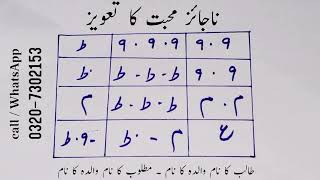 ناجائز محبت کا تعویز
9 . 9 9 . 9 . 9 ط
9 . 9 ط - ط - ط ظ
م . م ط - ط - ط م
ع م - ظ -9 . ط
طالب کا نام والدہ کا نام ۔ مطلوب کا نام والدہ کا نام
call / WhatsApp
0320-7302153